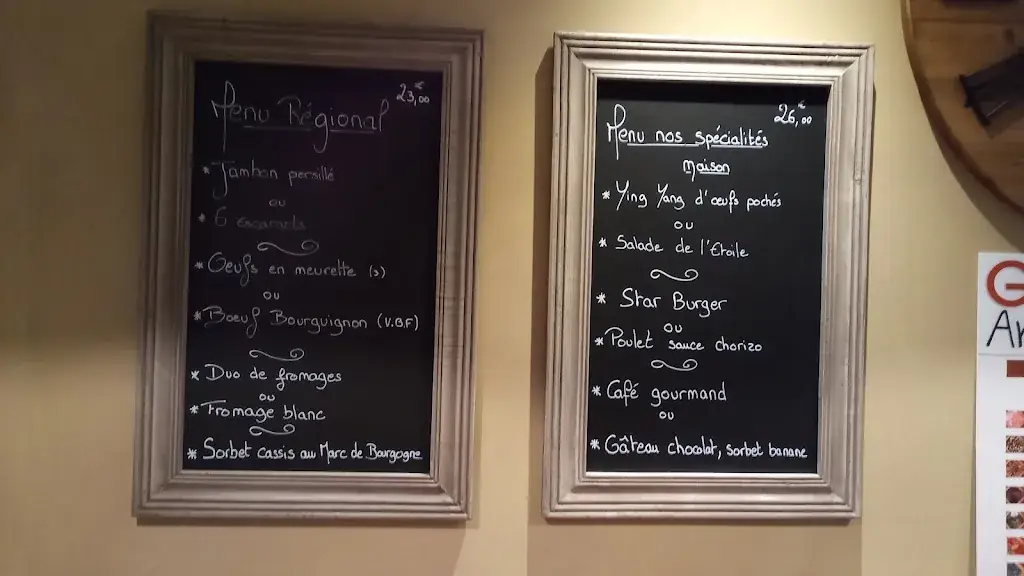 Menu Régional 23,00€
* Jambon persillé
ou
* 6 escargots
* Oeufs en meurette (3)
ou
* Boeuf Bourguignon (V.B.F)
* Duo de fromages
ou
* Fromage blanc
* Sorbet cassis au Marc de Bourgogne
26,00€
Menu nos spécialités
maison
* Ying Yang d'œufs pochés
ou
* Salade de l'Etoile
* Star Burger
ou
* Poulet sauce chorizo
* Café gourmand
ou
* Gâteau chocolat, sorbet banane